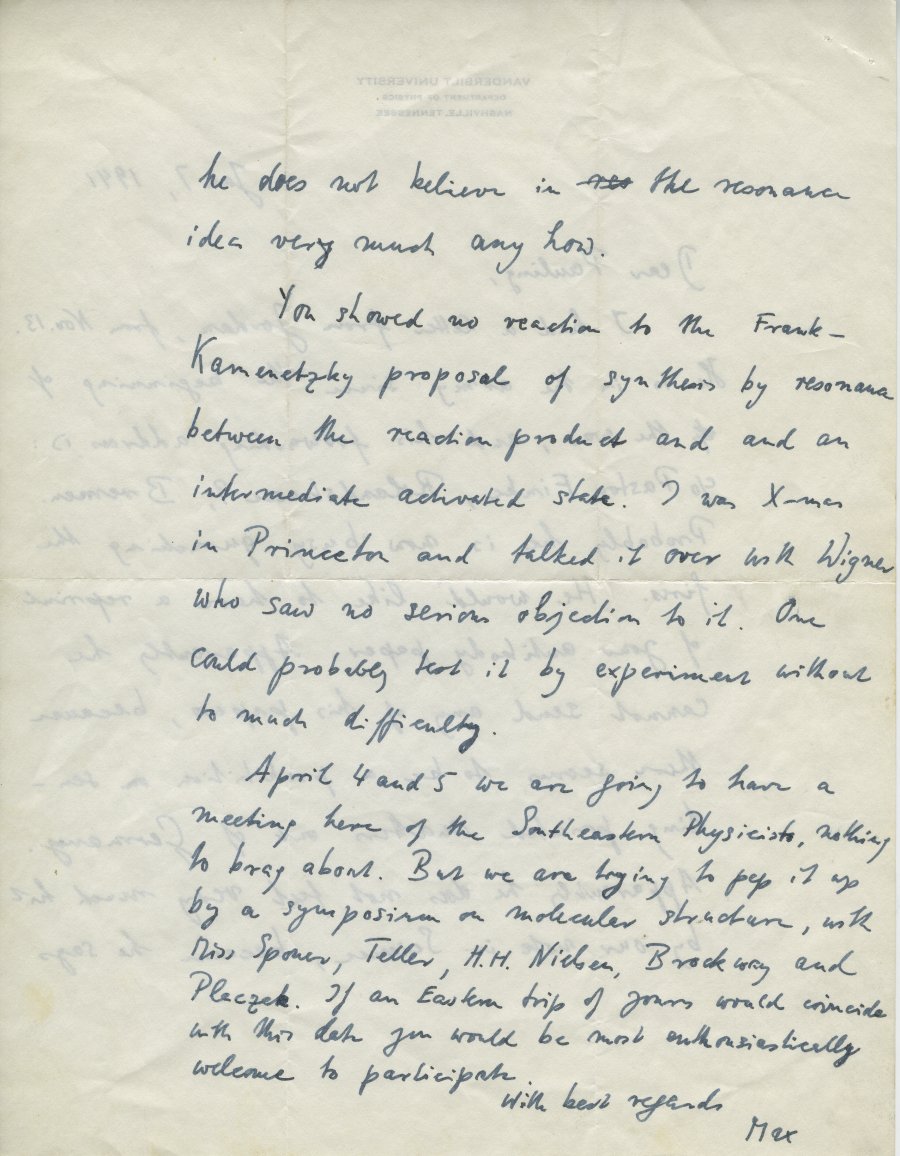 VANDERBILT UNIVERSITY
DEPARTMENT OF PHYSICS
NASHVILLE, TENNESSEE
he does not believe in res the resonance
idea very much any how.
You showed no reaction to the Frank-
Kamenetzky proposal of synthesis by resonance
between the reaction product and and an
intermediate activated state. I was X-mas
in Princeton and talked it over with Wigner
who saw no serious objection to it. One
could probably test it by experiment without
to much difficulty.
April 4 and 5 we are going to have a
meeting here of the Southeastern Physicists, nothing
to brag about. But we are trying to pep it up
by a symposium on molecular structure, with
Miss Sponer, Teller, H.H. Nielsen, Brockway and
Placzek. If an Eastern trip of yours would coincide
with this date you would be most enthusiastically
welcome to participate
With best regards
Max